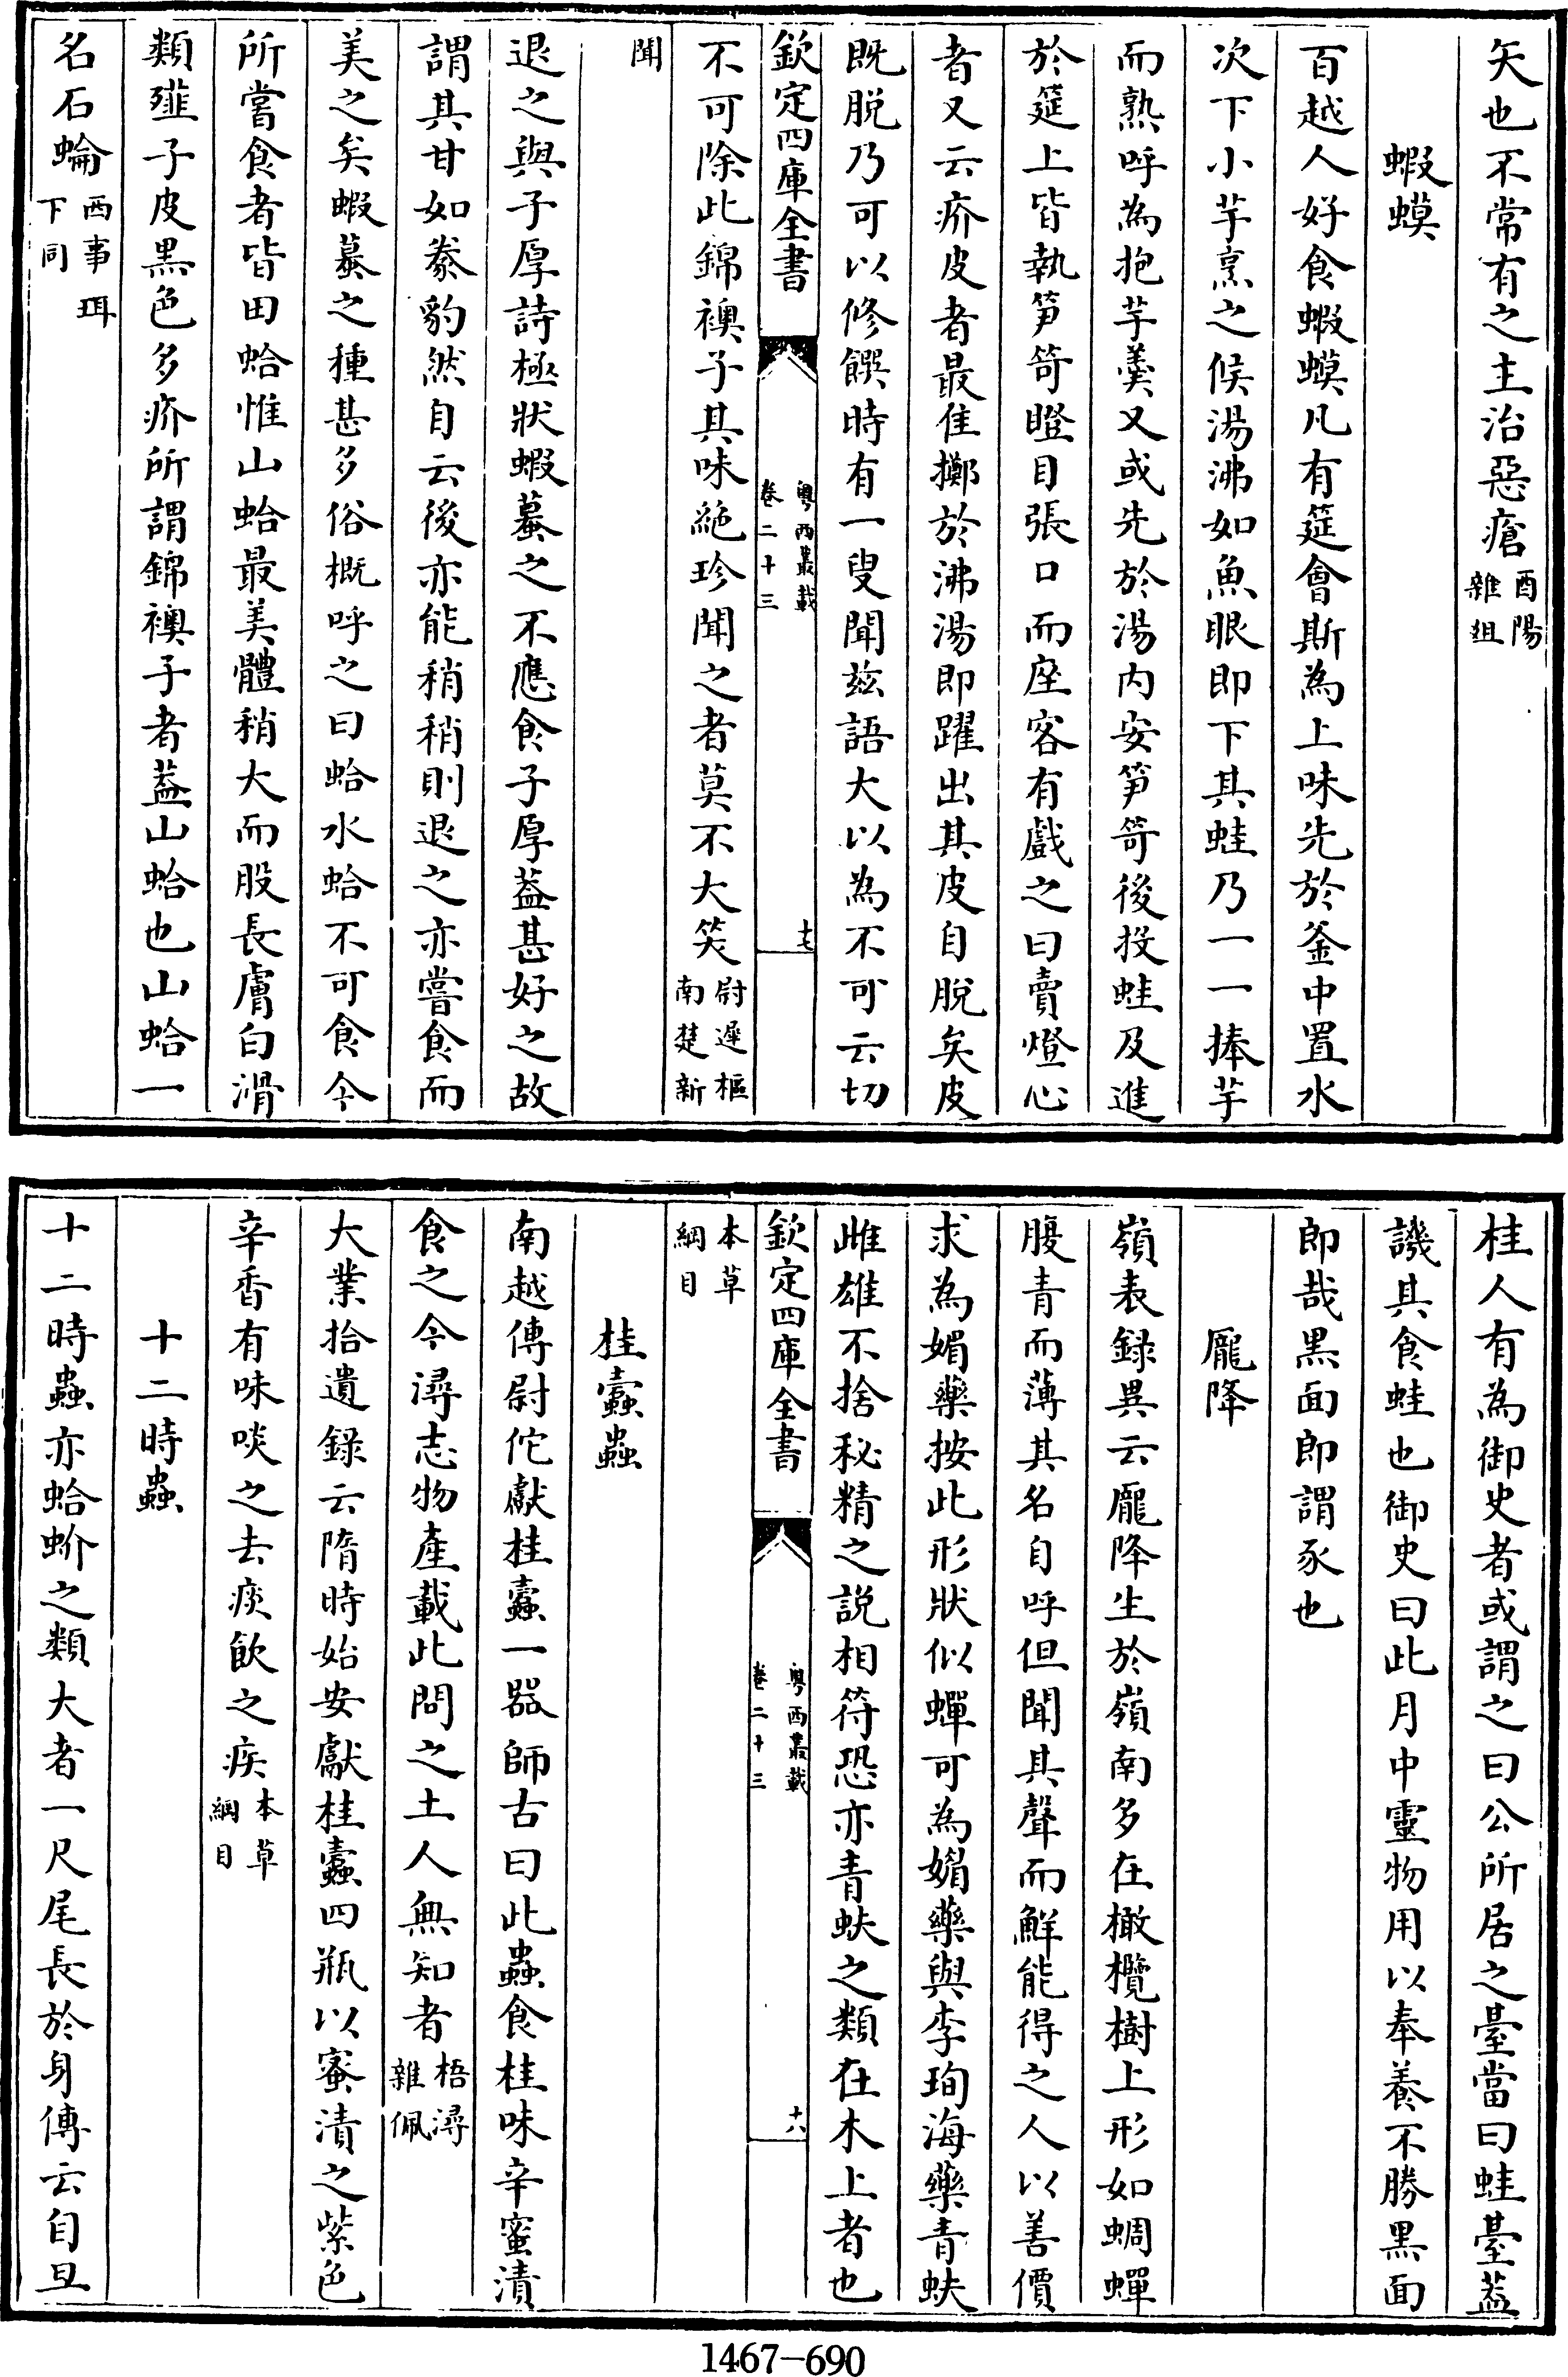 矢也不常有之主治惡瘡酉陽雜俎
蝦蟆
百越人好食蝦蟆凡有筵會斯為上味先於釜中置水
次下小芋烹之候湯沸如魚眼即下其蛙乃一一捧芋
而熟呼為抱芋羹又或先於湯内安笋笴後投蛙及進
於筵上皆執笋笴瞪目張口而座客有戲之曰賣燈心
者又云疥皮者最佳擲於沸湯即躍出其皮自脱矣皮
既脱乃可以修饌時有一叟聞兹語大以為不可云切
欽定四庫全書
粤西叢載
卷二十三
十七
不可除此錦襖子其味絶珍聞之者莫不大笑尉遲樞南楚新
聞
退之與子厚詩極狀蝦蟇之不應食子厚葢甚好之故
謂其甘如豢豹然自云後亦能稍稍則退之亦嘗食而
美之矣蝦蟇之種甚多俗概呼之曰蛤水蛤不可食今
所嘗食者皆田蛤惟山蛤最美體稍大而股長膚白滑
類䪥子皮黒色多疥所謂錦襖子者葢山蛤也山蛤一
名石蜦西事珥下同
桂人有為御史者或謂之曰公所居之臺當曰蛙臺葢
譏其食蛙也御史曰此月中靈物用以奉養不勝黒面
郎哉黒面郎謂豕也
龐降
嶺表録異云龐降生於嶺南多在橄欖樹上形如蜩蟬
腹青而薄其名自呼但聞其聲而鮮能得之人以善價
求為媚藥按此形狀似蟬可為媚藥與李珣海藥青蚨
雌雄不捨秘精之説相符恐亦青蚨之類在木上者也
欽定四庫全書
粤西叢載
卷二十三
十八
本草綱目
桂蠹蟲
南越傳尉佗獻桂蠹一器師古曰此蟲食桂味辛蜜漬
食之今潯志物產載此問之土人無知者梧潯雜佩
大業拾遺録云隋時始安獻桂蠹四瓶以蜜漬之紫色
辛香有味啖之去痰飲之疾本草綱目
十二時蟲
十二時蟲亦蛤蚧之類大者一尺尾長於身傳云自旦
1467-690